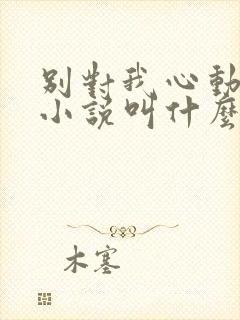 别對我心動
小說叫什麼
木塞